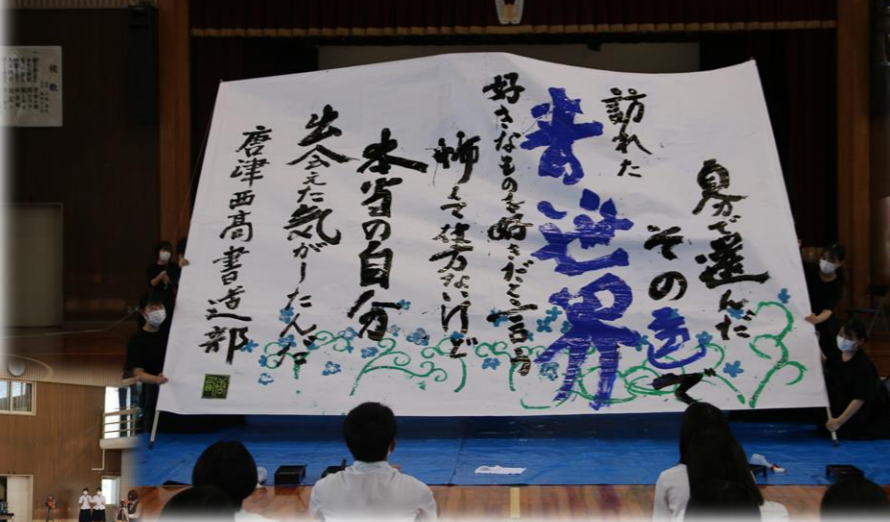 自分で選んだ
その色で
訪れた
青い世界
好きなものを好きだと言う
怖くて仕方ないけど
本当の自分
出会えた気がしたんだ
唐津西高書道部
校歌